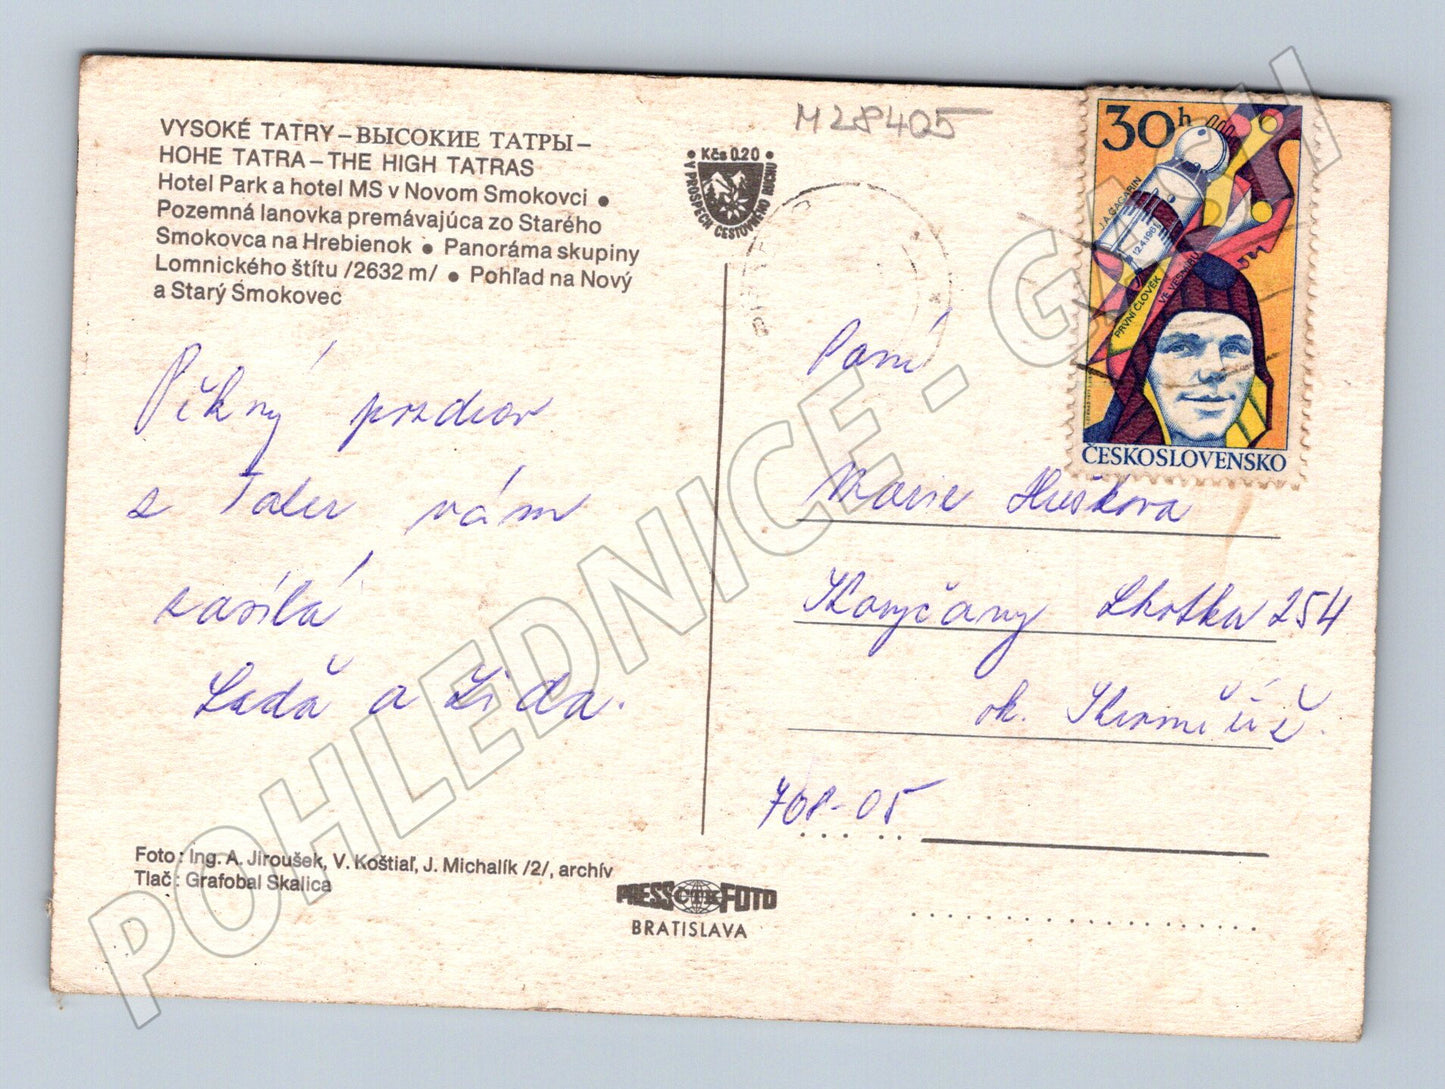 VYSOKÉ TATRY – ВЫСОКИЕ ТАТРЫ –
HOHE TATRA – THE HIGH TATRAS
Hotel Park a hotel MS v Novom Smokovci •
Pozemná lanovka premávajúca zo Starého
Smokovca na Hrebienok • Panoráma skupiny
Lomnického štítu /2632 m/ • Pohľad na Nový
a Starý Smokovec
Pěkný pozdrav
z Tater vám
zasílá
Laďa a Lída.
Foto: Ing. A. Jiroušek, V. Koštiaľ, J. Michalík /2/, archív
Tlač: Grafobal Skalica
PRESS ČTK FOTO
BRATISLAVA
• Kčs 0.20 •
V PROSPECH CESTOVNÉHO RUCHU
M28405
30h
J.A. GAGARIN
12.4.1961
PRVNÍ ČLOVĚK
VE VESMÍRU
ČESKOSLOVENSKO
Paní
Marie Hušková
Koryčany Lhotka 254
ok. Kroměříž.
768-05
POHLEDNICE - GACH